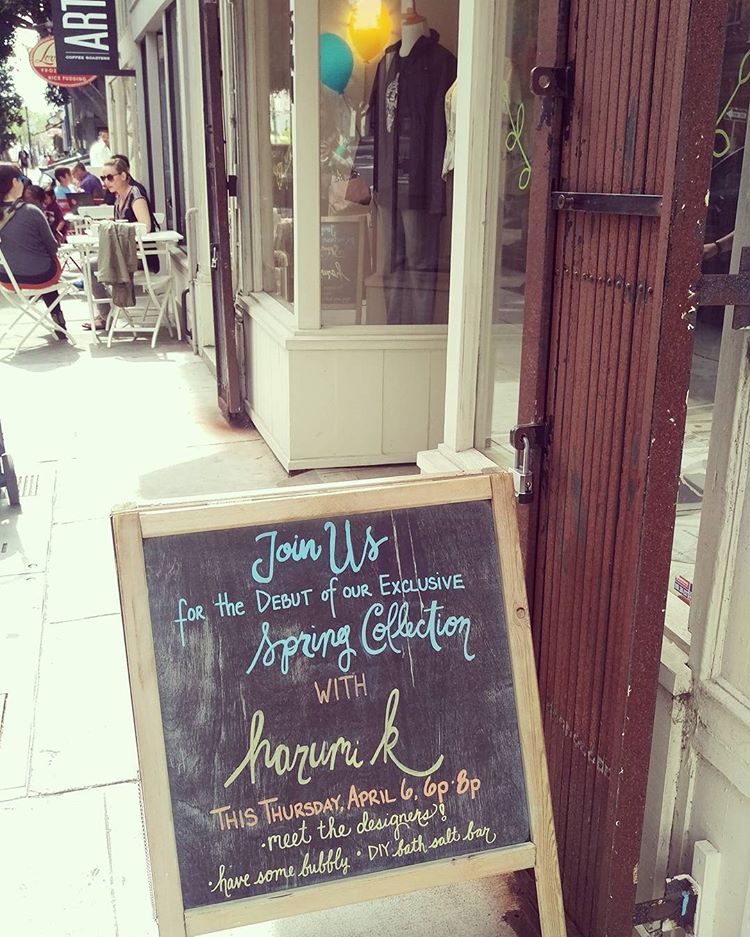 ART
COFFEE ROASTERS
RICE PUDDING
Join Us
for the Debut of our Exclusive
Spring Collection
WITH
harumi k
This Thursday, April 6, 6p-8p
• meet the designers!
• have some bubbly • DIY bath salt bar